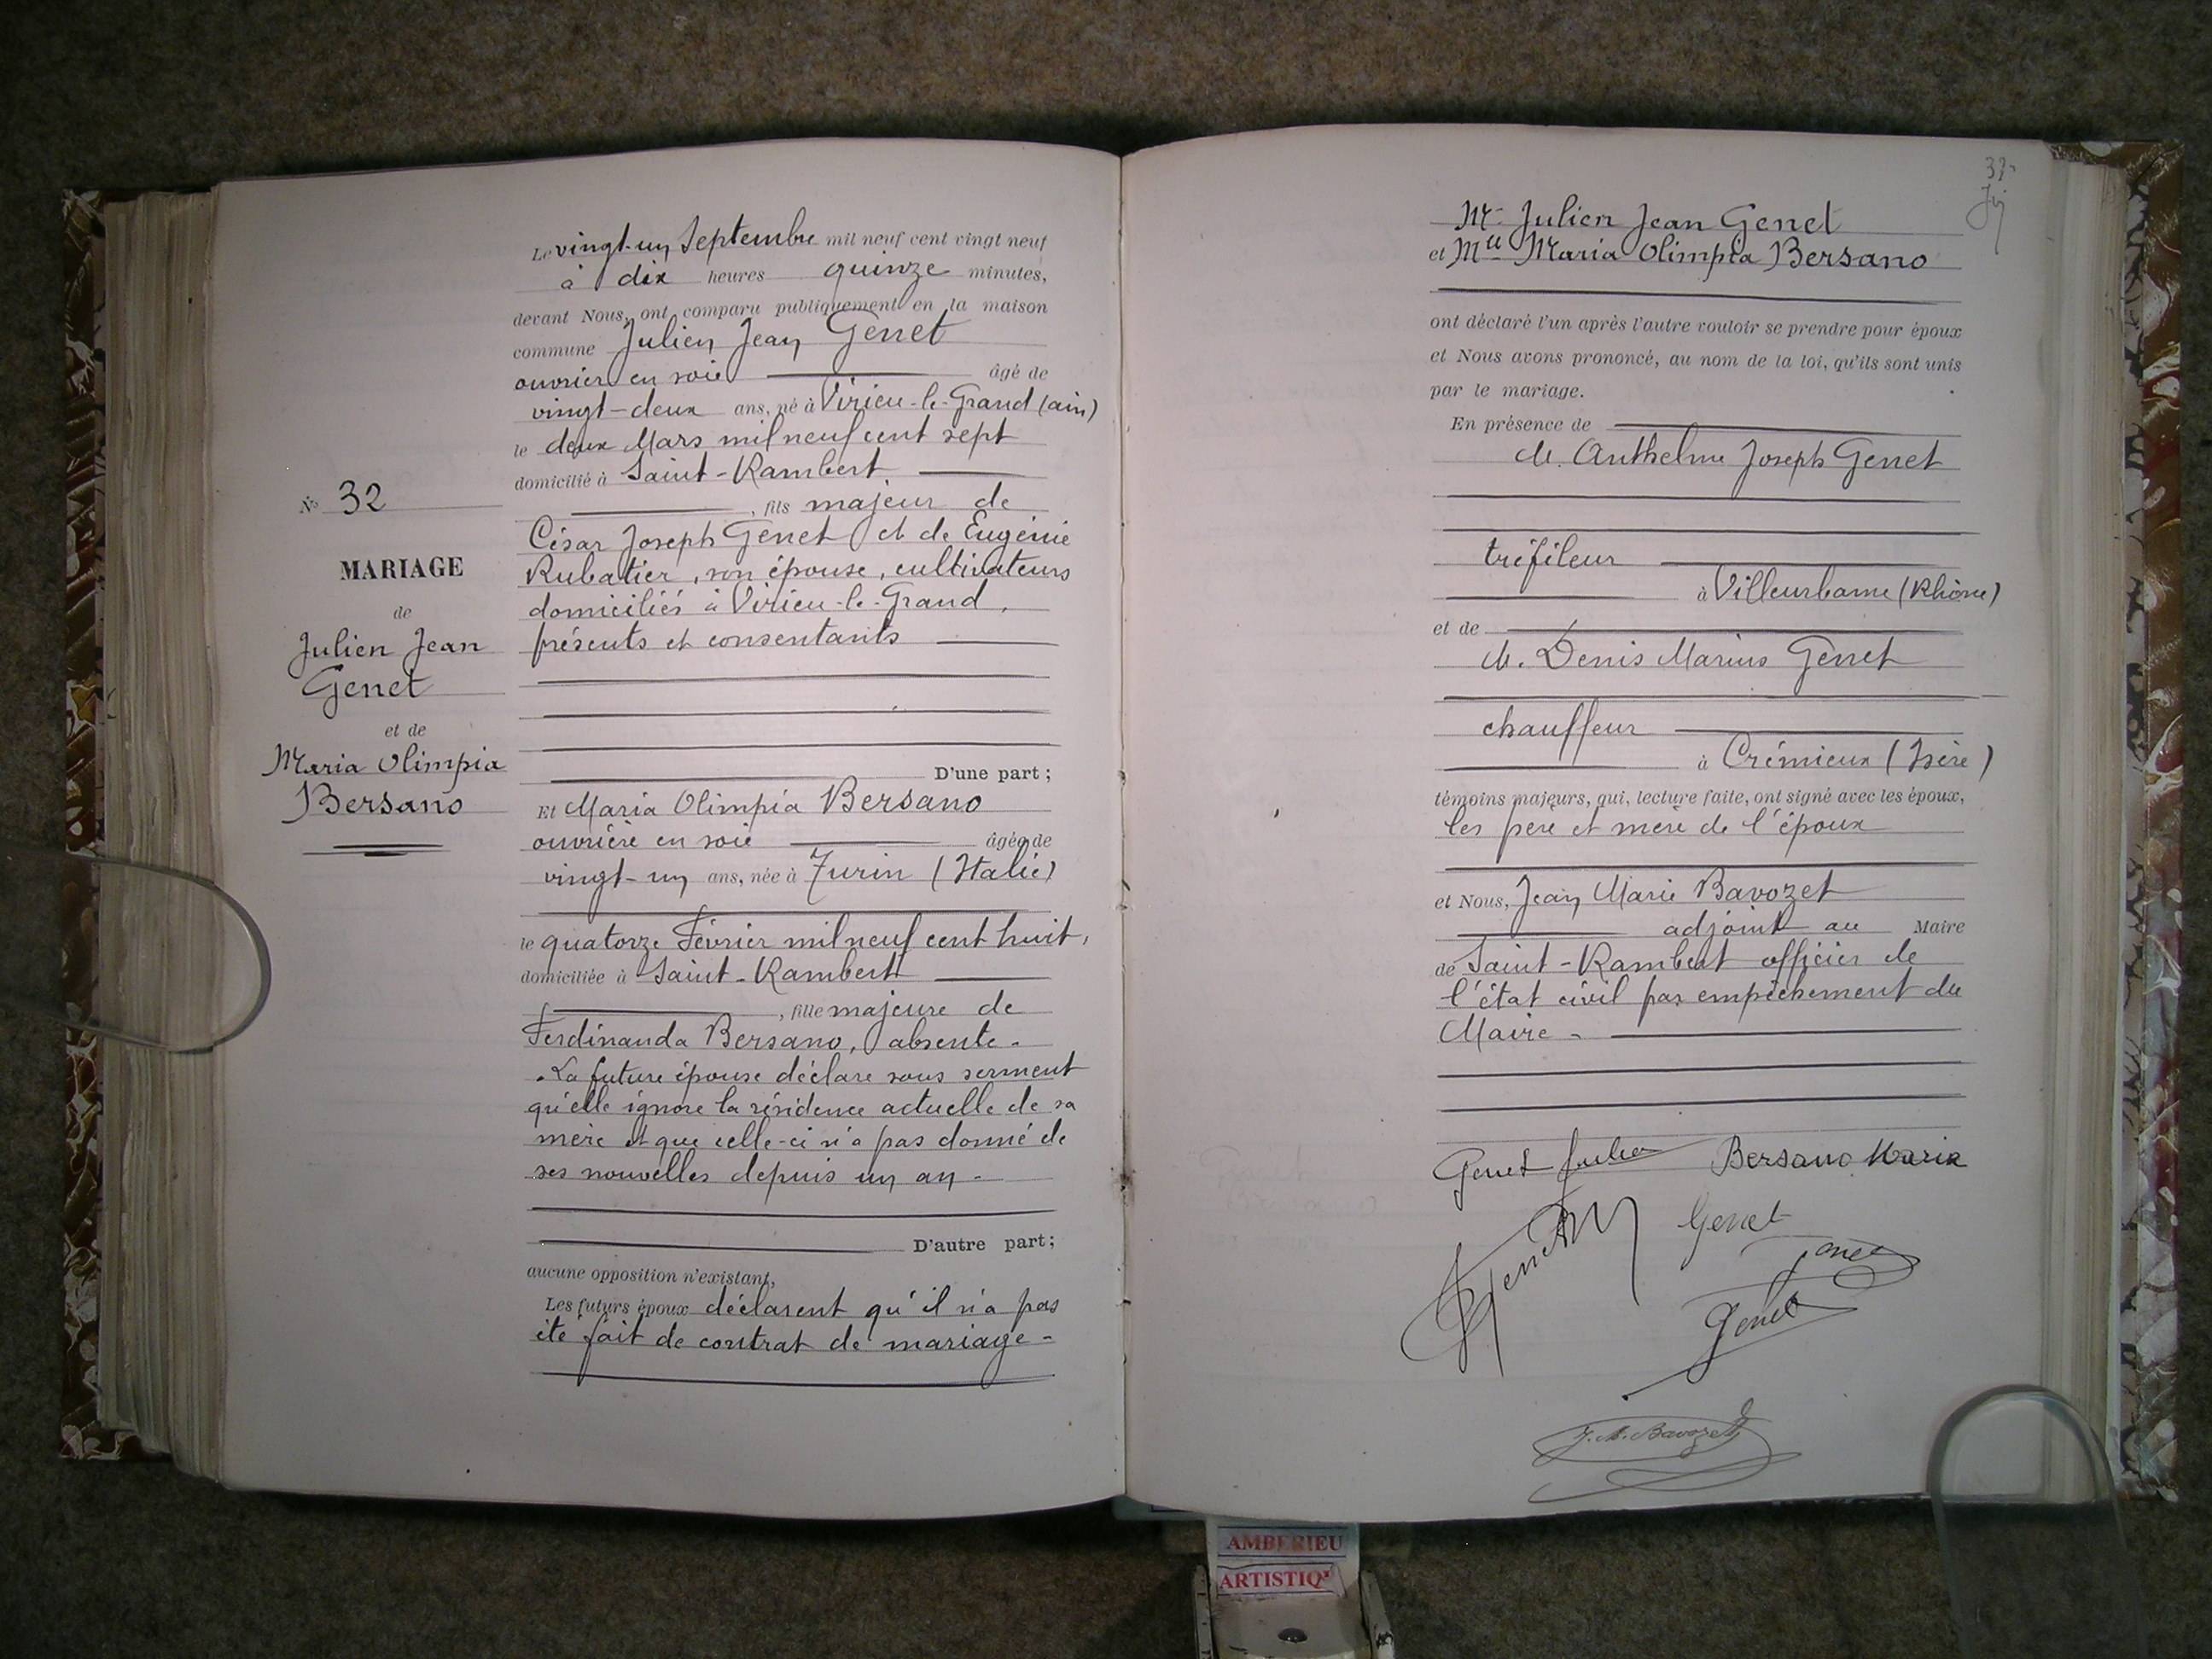 Le vingt-un Septembre mil neuf cent vingt neuf
à dix heures quinze minutes,
devant Nous, ont comparu publiquement en la maison
commune Julien Jean Genet
ouvrier en soie âgé de
vingt-deux ans, né à Virieu-le-Grand (ain)
le deux Mars mil neuf cent sept
domicilié à Saint-Rambert
, fils majeur de
César Joseph Genet et de Eugénie
Rubatier, son épouse, cultivateurs
domiciliés à Virieu-le-Grand,
présents et consentants
D'une part;
Et Maria Olimpia Bersano
ouvrière en soie âgée de
vingt-un ans, née à Turin (Italie)
le quatorze Février mil neuf cent huit,
domiciliée à Saint-Rambert
, fille majeure de
Ferdinanda Bersano, absente.
La future épouse déclare sous serment
qu'elle ignore la résidence actuelle de sa
mère et que celle-ci n'a pas donné de
ses nouvelles depuis un an -
D'autre part;
aucune opposition n'existant,
Les futurs époux déclarent qu'il n'a pas
été fait de contrat de mariage -
No 32
MARIAGE
de
Julien Jean
Genet
et de
Maria Olimpia
Bersano
37
Mr Julien Jean Genet
et Mlle Maria Olimpia Bersano
ont déclaré l'un après l'autre vouloir se prendre pour époux
et Nous avons prononcé, au nom de la loi, qu'ils sont unis
par le mariage.
En présence de
M. Anthelme Joseph Genet
tréfileur
à Villeurbanne (Rhône)
et de
M. Denis Marius Genet
chauffeur
à Crémieux (Isère)
témoins majeurs, qui, lecture faite, ont signé avec les époux,
les père et mère de l'époux
et Nous, Jean Marie Bavozet
adjoint au Maire
de Saint-Rambert officier de
l'état civil par empêchement du
Maire -
Genet Julien Bersano Maria
Genet
Genet
J. M. Bavozet
AMBERIEU
ARTISTIQ